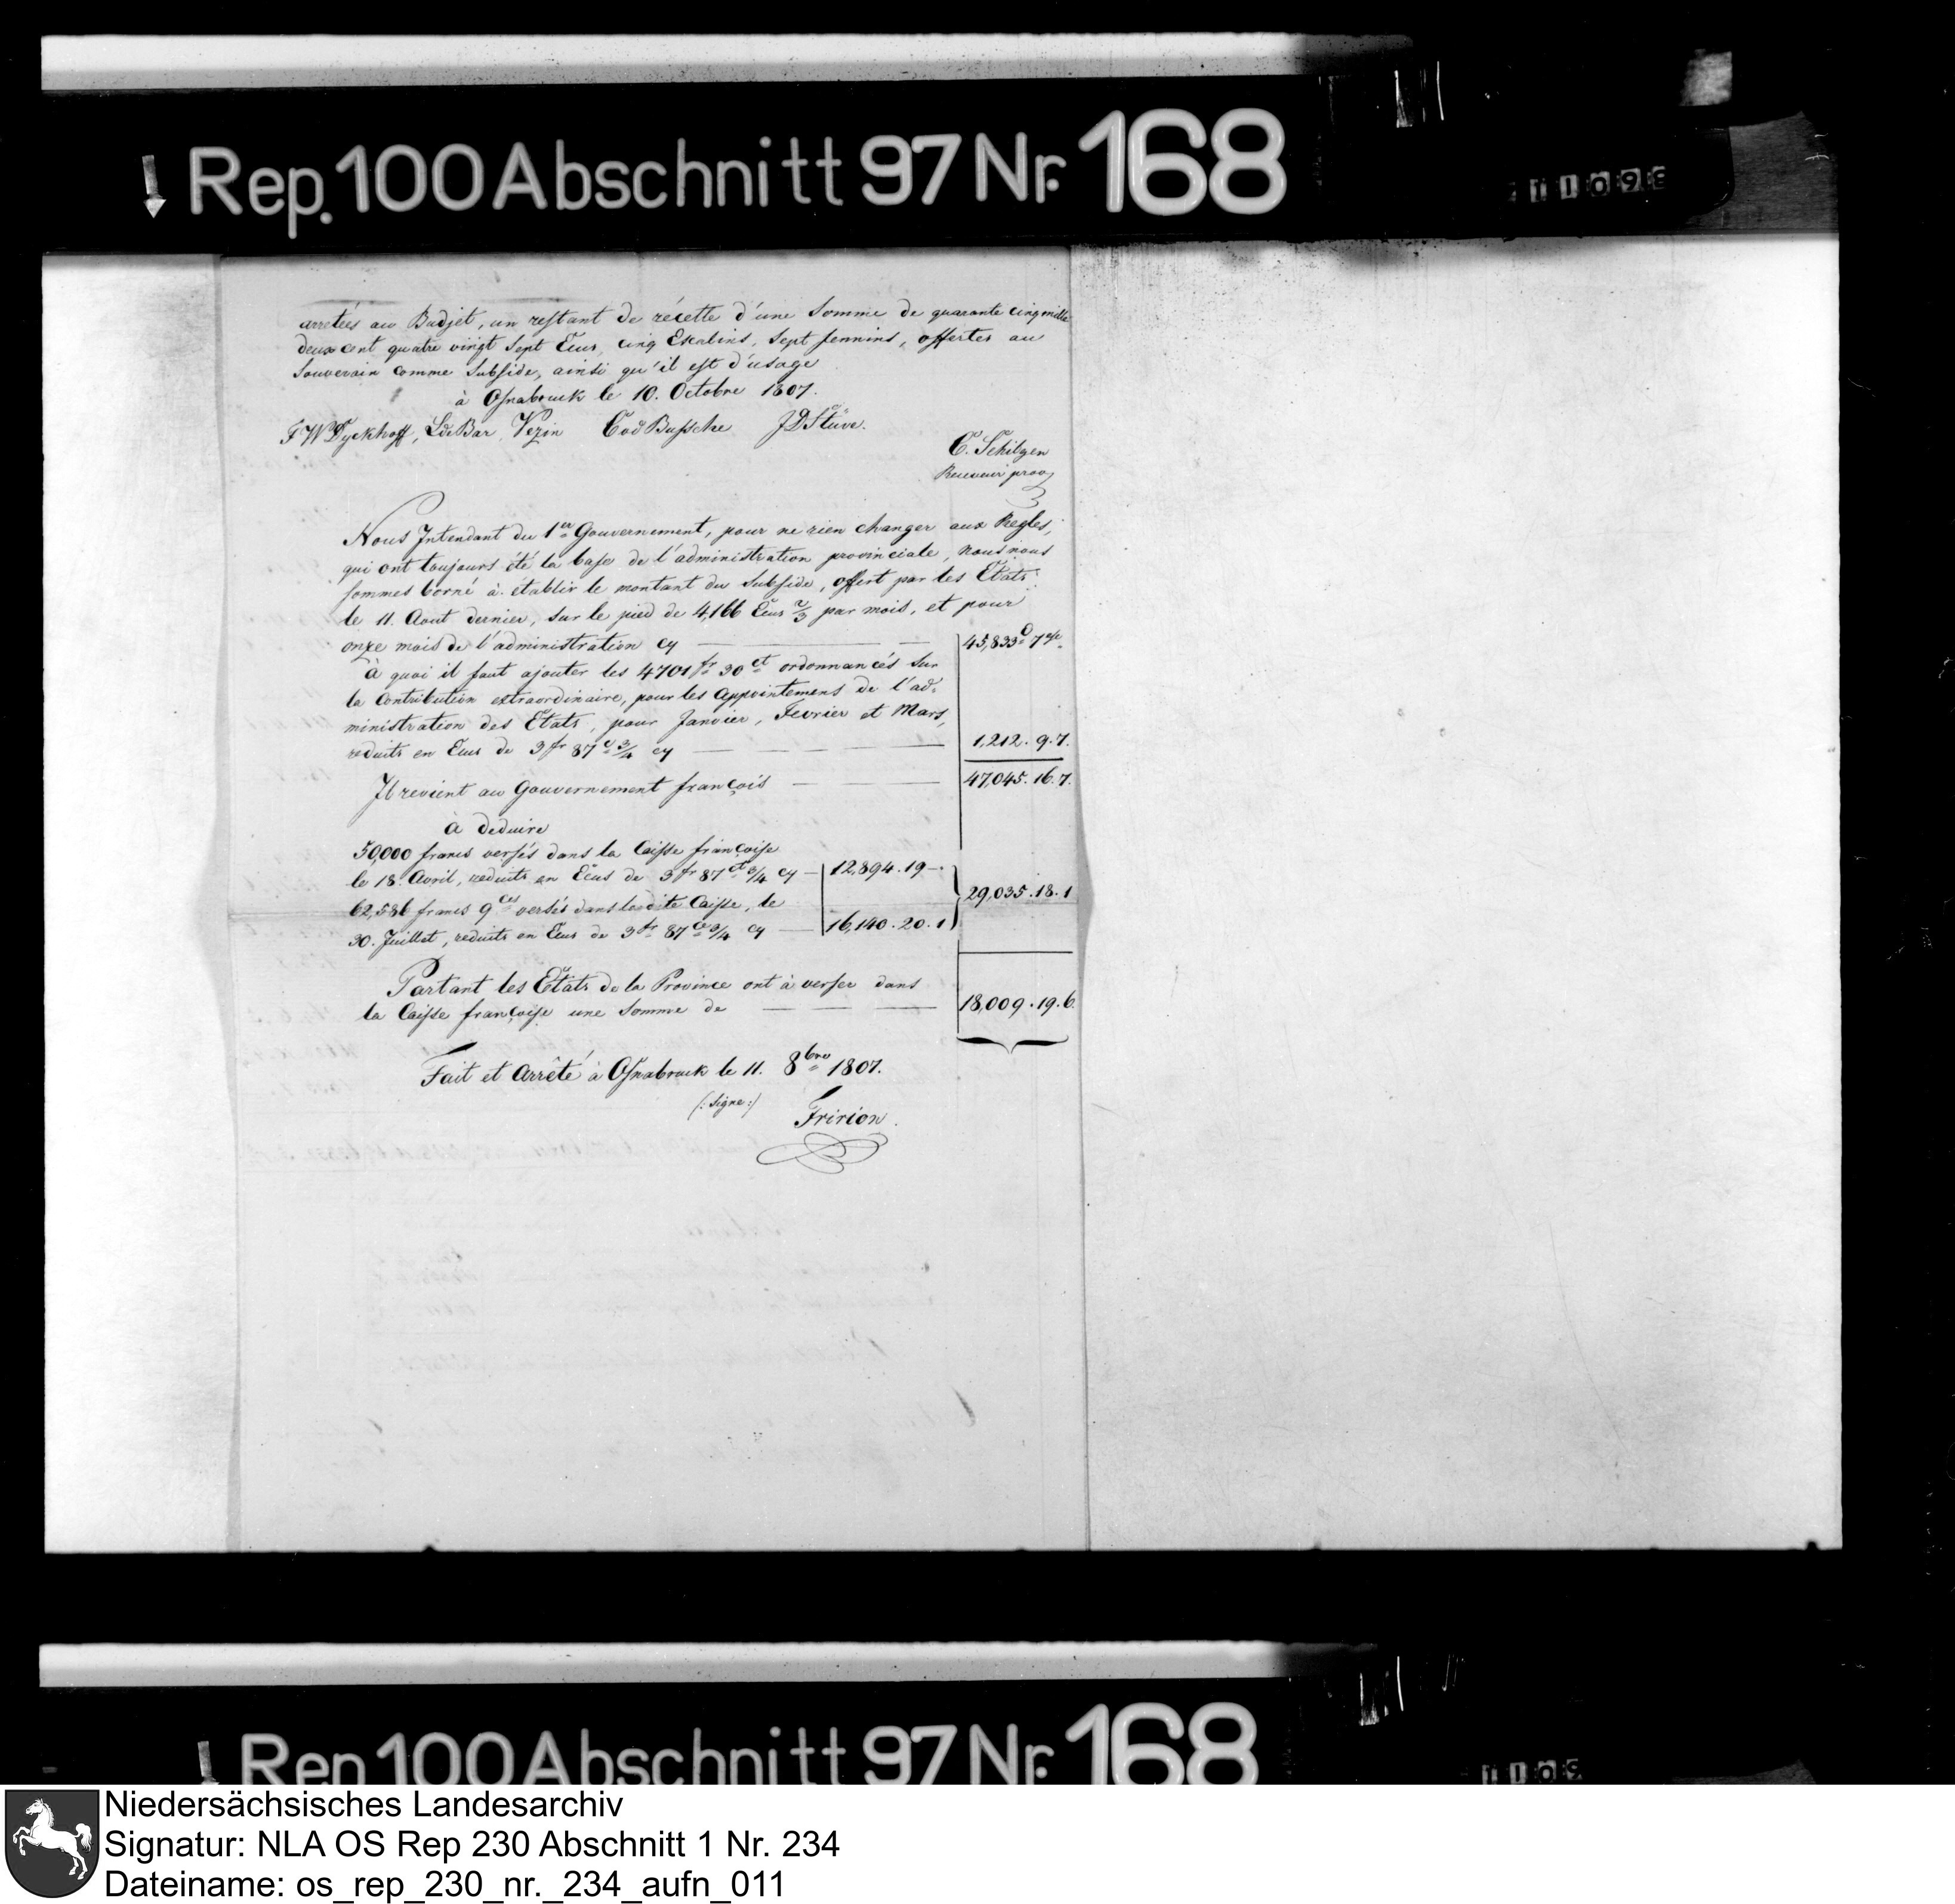 Rep. 100 Abschnitt 97 Nr. 168
arretées au Budjet, un restant de récette d'une Somme de quarante cinq mille
deux cent quatre vingt Sept Ecus, cinq Escalins, Sept fennins, offertes au
Souverain comme Subside, ainsi qu'il est d'usage
à Osnabruck le 10. Octobre 1807.
F W Dyckhoff, L de Bar Vezin C v d Bussche J D Stüve.
C. Schilgen
Receveur prov
Nous Intendant du 1er Gouvernement, pour ne rien changer aux Regles,
qui ont toujours été la base de l'administration provinciale, nous nous
sommes borné à établir le montant du Subside, offert par les États
le 11. Aout dernier, sur le pied de 4,166 Ecus 2/3 par mois, et pour
onze mois de l'administration cy — — 45,833 7
à quoi il faut ajouter les 4701 fr 30 ct ordonnancés sur
la Contribution extraordinaire, pour les Appointemens de l'ad-
ministration des États, pour Janvier, Fevrier et Mars,
reduits en Ecus de 3 fr 87 c 3/4 cy — — — — 1,212. 9. 7.
Il revient au Gouvernement françois — — — 47,045. 16. 7.
à deduire
50,000 francs versés dans la Caisse françoise
le 18. Avril, reduits en Ecus de 3 fr 87 ct 3/4 cy — 12,894. 19 —
29,035. 18. 1
62,586 francs 9 ces versés dans la dite Caisse, le
30. Juillet, reduits en Ecus de 3 fr 87 ce 3/4 cy — 16,140. 20. 1
Partant les États de la Province ont à verser dans
la Caisse françoise une Somme de — — — 18,009. 19. 6.
Fait et Arrêté à Osnabruck le 11. 8bre 1807.
(: Signe :) Fririon.
Rep 100 Abschnitt 97 Nr. 168
Niedersächsisches Landesarchiv
Signatur: NLA OS Rep 230 Abschnitt 1 Nr. 234
Dateiname: os_rep_230_nr._234_aufn_011